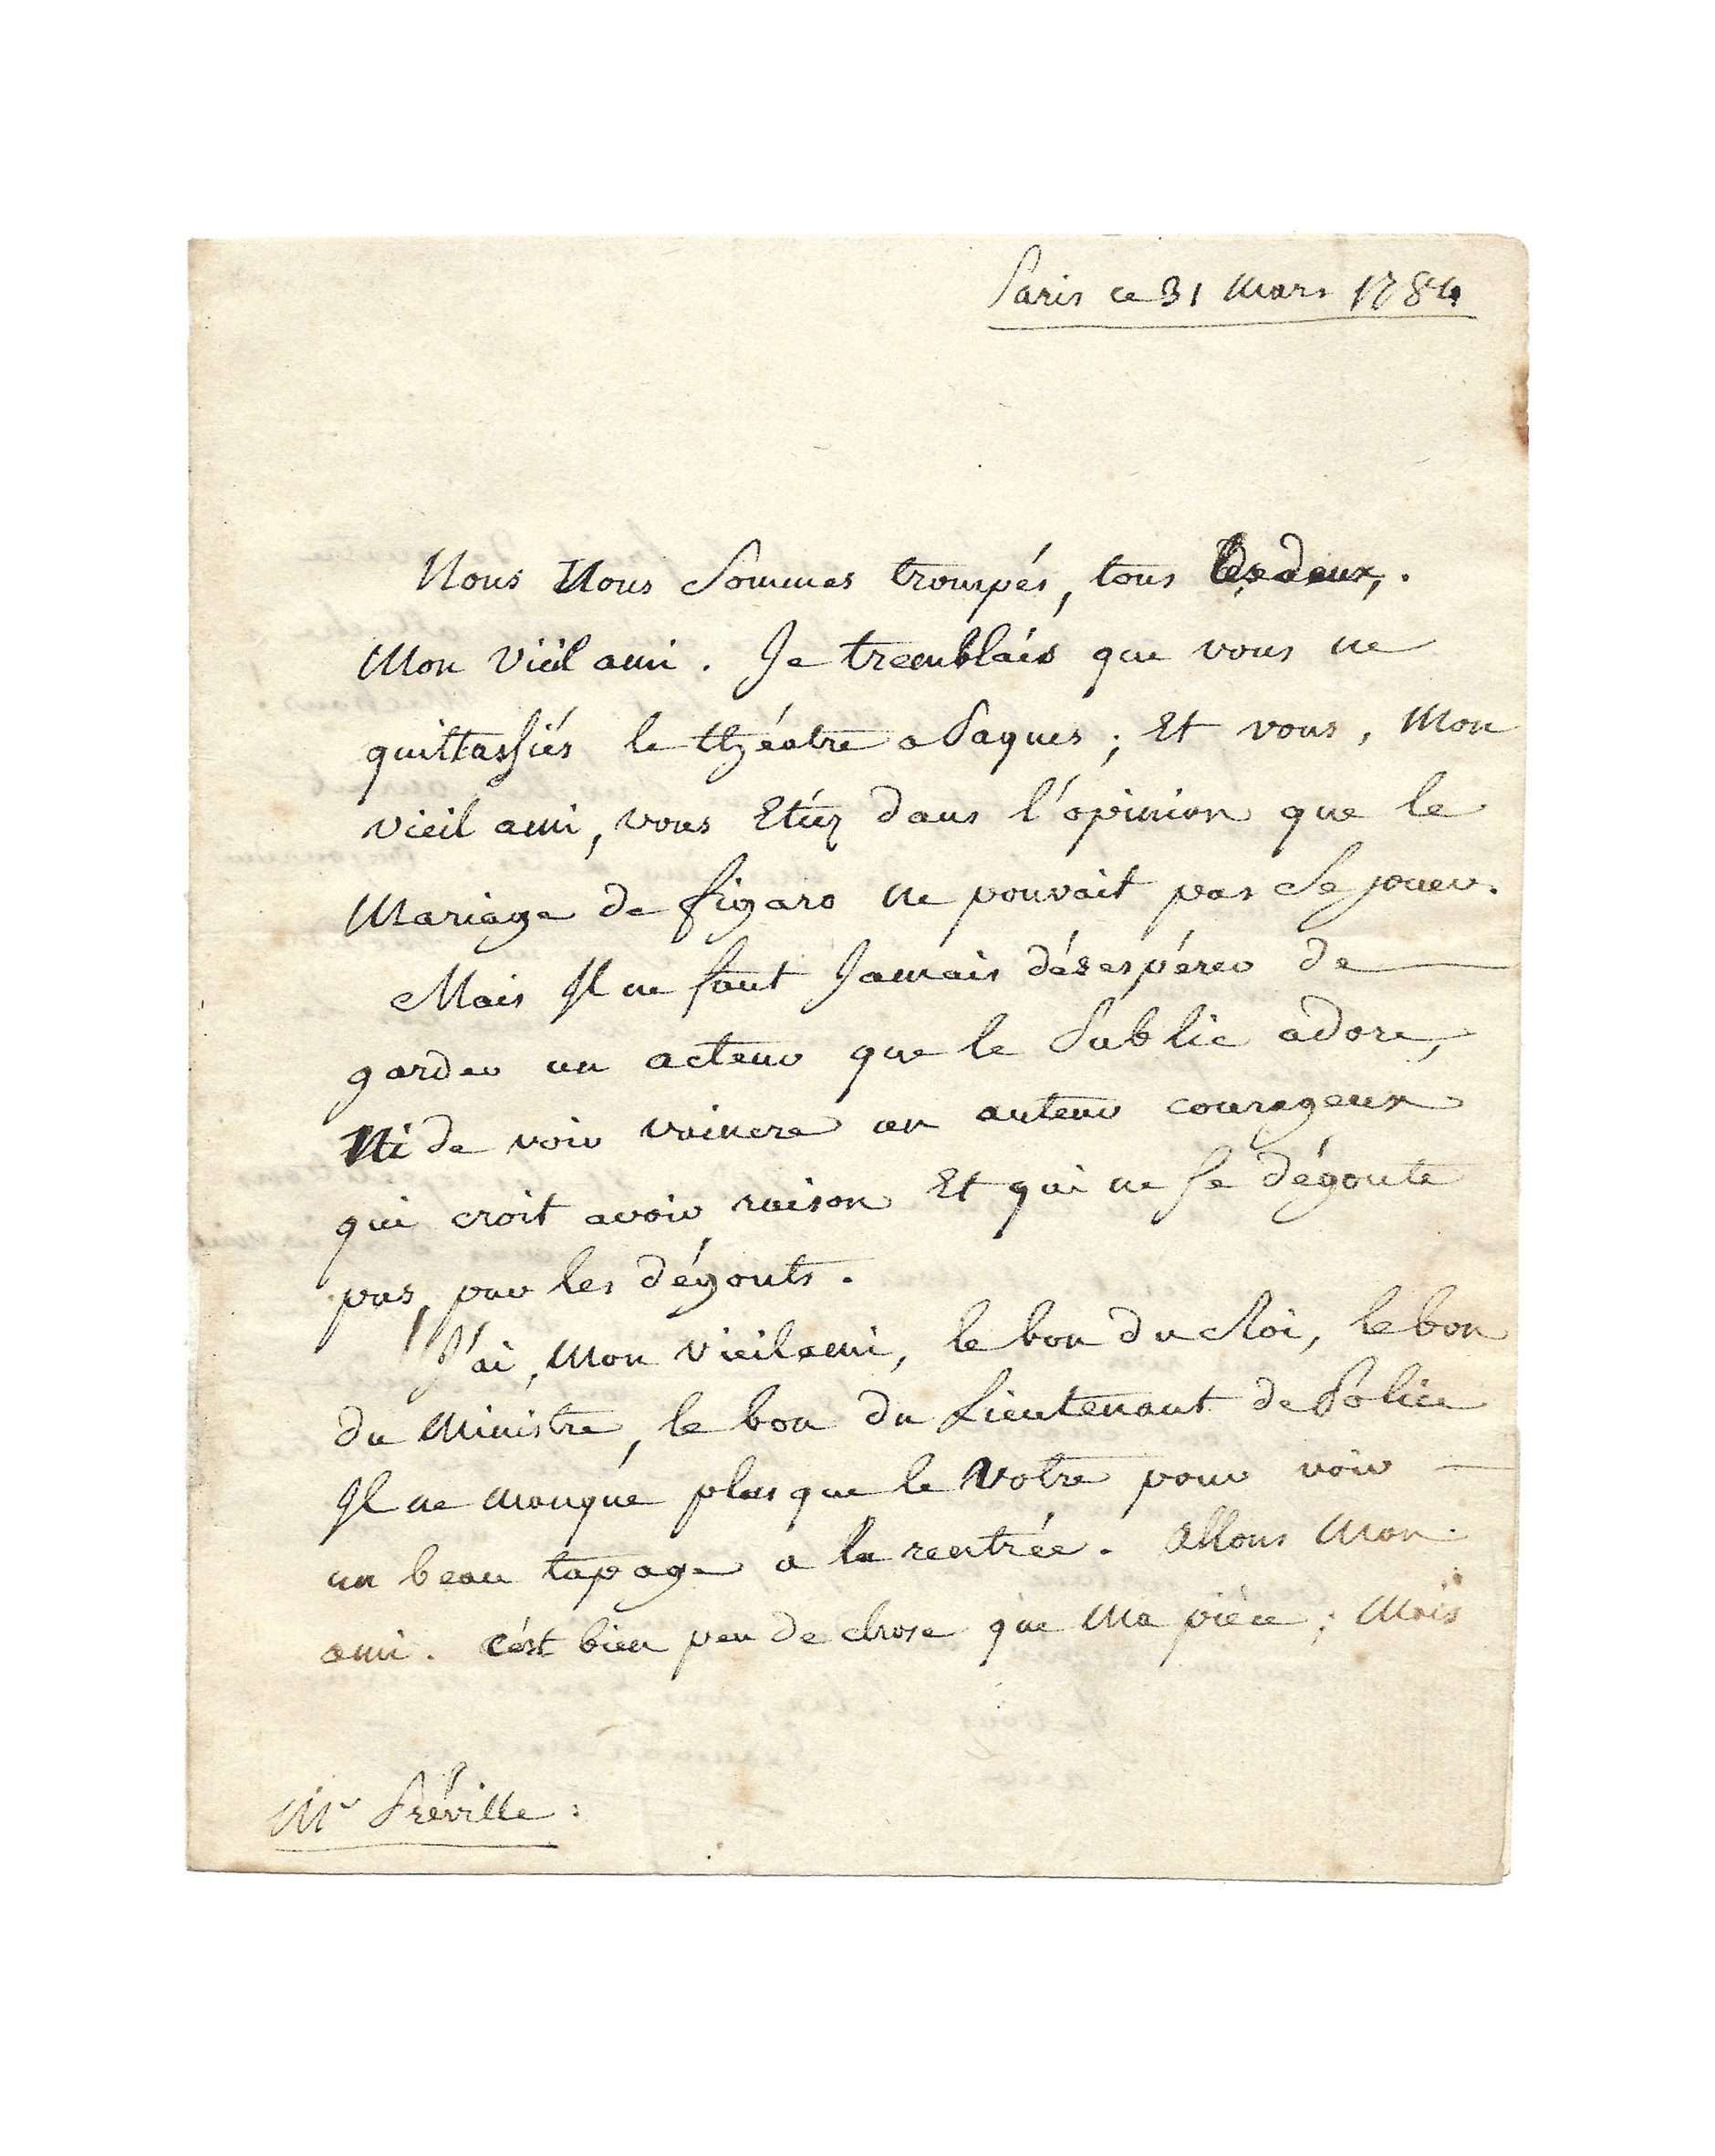 Paris ce 31 Mars 1784
Nous Nous Sommes trompés, tous les deux,
Mon vieil ami. Je tremblais que vous ne
quittassiés le théatre a Paques ; Et vous, Mon
vieil ami, vous Etiez dans l'opinion que le
Mariage de figaro ne pouvait pas Se jouer.
Mais Il ne faut Jamais désespérer de
garder un acteur que le Public adore,
Ni de voir vaincre un auteur courageux
qui croit avoir raison Et qui ne se dégoute
pas, par les dégouts.
J'ai, Mon vieil ami, le bon du Roi, le bon
du Ministre, le bon du Lieutenant de Police
Il ne manque plus que le Votre pour voir
un beau tapage a la rentrée. Allons Mon
ami. c'est bien peu de chose que Ma pièce ; Mais
Mr Préville :